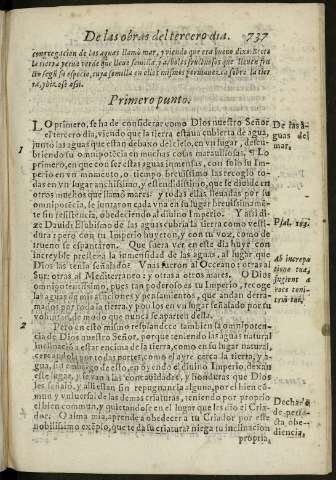 De las obras del tercero dia. 737
congregacion de las aguas llamò mar, y viendo que era bueno dixo: Brote
la tierra yerua verde que lleue semilla, y arboles fructuosos que lleuen fru
to segũ su especie, cuya semilla en ellos mismos permanezca sobre la tier
ra, y hizose assi.
Primero punto.
1
LO primero, se ha de considerar como Dios nuestro Señor
el tercero dia, viendo que la tierra estaua cubierta de agua,
juntò las aguas que estan debaxo del cielo, en vn lugar, descu-
briendo su omnipotẽcia en muchas cosas marauillosas. Lo
primero, en que con ser estas aguas inmensas, con solo su Im-
perio en vn momento, o tiempo breuissimo las recogio to-
das en vn lugar anchissimo, y estendidissimo, que se diuide en
otros muchos que llamò mares: y todas ellas lleuadas por su
omnipotẽcia, se juntaron cada vna en su lugar breuissimamẽ-
te sin resistencia, obedeciendo al diuino Imperio. Y assi di-
ze Dauid: El abismo de las aguas cubria la tierra como vesti-
dura; pero con tu Imperio huyeron, y con tu voz, como de
trueno se espantaron. Que fuera ver en este dia huyr con
increyble presteza la inmensidad de las aguas, al lugar que
Dios las tenia señalado? Vnas fueron al Oceano: otras al
Sur: otras al Mediterraneo, y otras a otros mares. O Dios
omnipotentissimo, pues tan poderoso es tu Imperio, recoge
las aguas de mis aficiones y pensamientos, que andan derra-
mados por toda la tierra, y põlos en vn lugar señalado por tu
voluntad, de modo que nunca se aparten desta.
2
Pero en esto mismo resplandece tambien la omnipoten-
cia de Dios nuestro Señor, porque teniendo las aguas natural
inclinaciõ a estar encima de la tierra, como en su lugar natural,
cercandola por todas partes, como el ayre cerca la tierra, y a-
gua, con todo esso, en oyendo el diuino Imperio, dexan
este lugar, y se van a las concauidades, y honduras que Dios
les señalò, y assisten sin repugnancia alguna, por el bien co-
mun y vniuersal de las demas criaturas, teniendo por proprio
el bien comun, y quietandose en el lugar que les dio el Cria-
dor. O alma mia, aprende a obedecer a tu Criador por este
nobilissimo exẽplo, que te da su criatura: niega tu inclinacion
propria,
De las a-
guas del
mar.
Psal. 103.
Ab increpa
tione tua,
fugient à
voce toni-
trui tui.
Dechado
de perfe-
cta obe-
diencia.